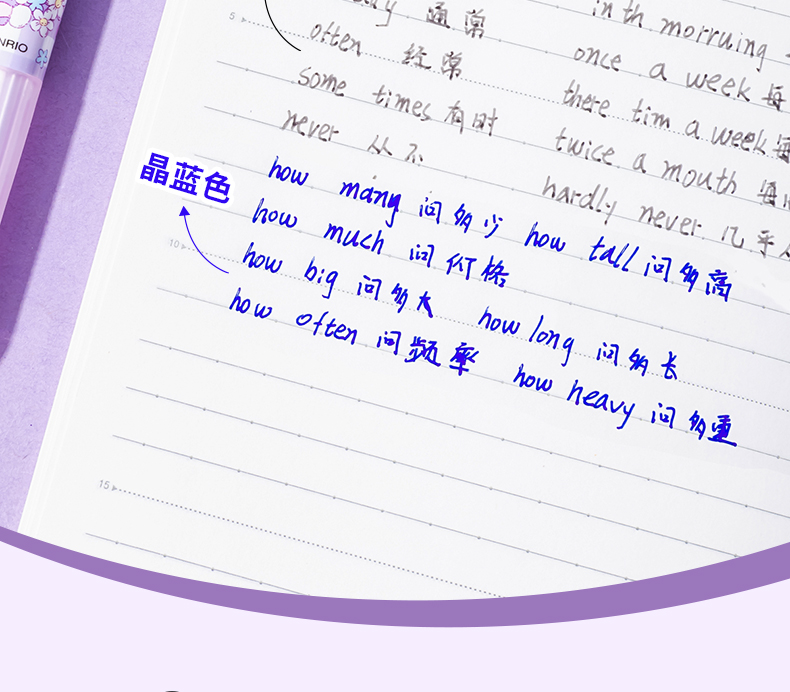 NRIO
5
通常 in th morruing
often 经常 once a week 每
some times 有时 there tim a week 每
never 从不 twice a mouth 每
hardly never 几乎
晶蓝色
how many 问多少 how tall 问多高
how much 问价格
10
how big 问多大 how long 问多长
how often 问频率 how heavy 问多重
15